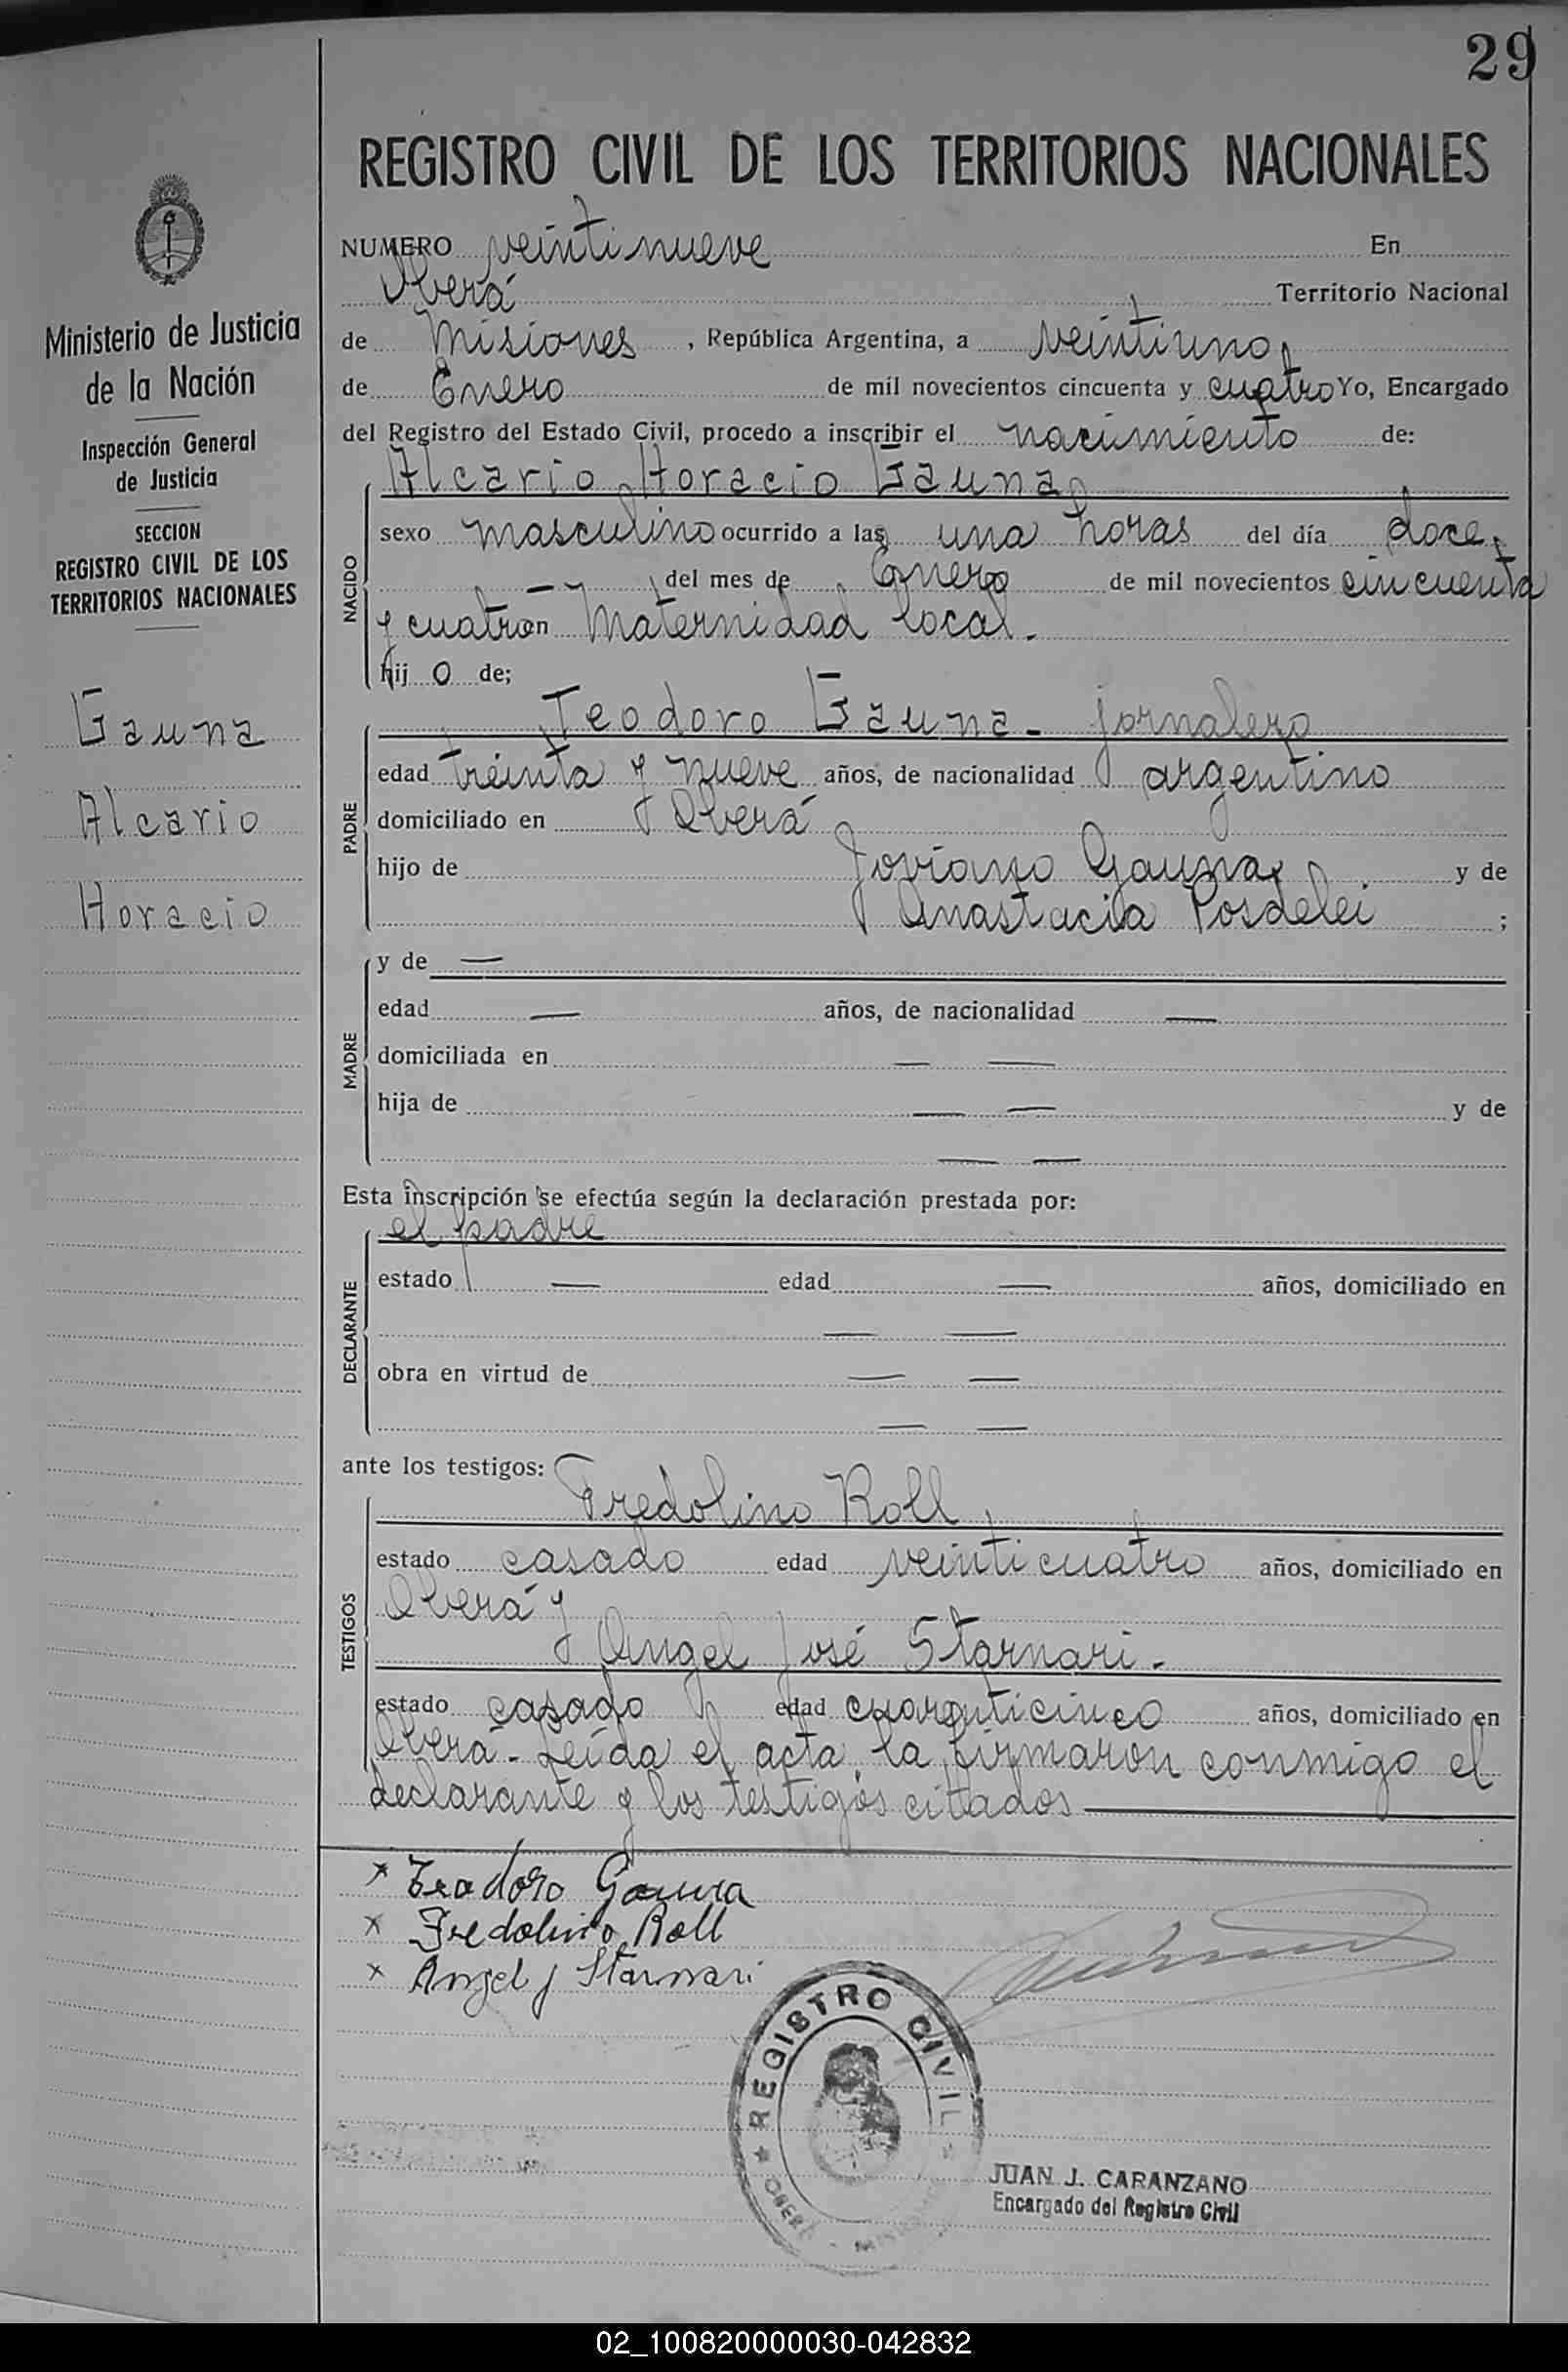 29
REGISTRO CIVIL DE LOS TERRITORIOS NACIONALES
Ministerio de Justicia
de la Nación
Inspección General
de Justicia
SECCION
REGISTRO CIVIL DE LOS
TERRITORIOS NACIONALES
Gauna
Alcario
Horacio
NUMERO veintinueve En
Oberá Territorio Nacional
de Misiones, República Argentina, a veintiuno
de Enero de mil novecientos cincuenta y cuatro Yo, Encargado
del Registro del Estado Civil, procedo a inscribir el nacimiento de:
Alcario Horacio Gauna
NACIDO
sexo masculino ocurrido a las una horas del día doce
— del mes de Enero de mil novecientos cincuenta
y cuatro en Maternidad local.
hijo de;
PADRE
Teodoro Gauna - jornalero
edad treinta y nueve años, de nacionalidad argentino
domiciliado en Oberá
hijo de Joviano Gauna y de
Anastacia Posdelei ;
MADRE
y de —
edad — años, de nacionalidad —
domiciliada en — —
hija de — — y de
— —
Esta inscripción se efectúa según la declaración prestada por:
el padre
DECLARANTE
estado — edad — años, domiciliado en
— —
obra en virtud de — —
— —
ante los testigos:
Fredolino Roll
TESTIGOS
estado casado edad veinticuatro años, domiciliado en
Oberá y
Angel José Starnari -
estado casado edad cuarenticinco años, domiciliado en
Oberá - Leída el acta, la firmaron conmigo el
declarante y los testigos citados
x Teodoro Gauna
x Fredolino Roll
x Angel J Starnari
REGISTRO CIVIL
OBERÁ - MISIONES
JUAN J. CARANZANO
Encargado del Registro Civil
02_100820000030-042832